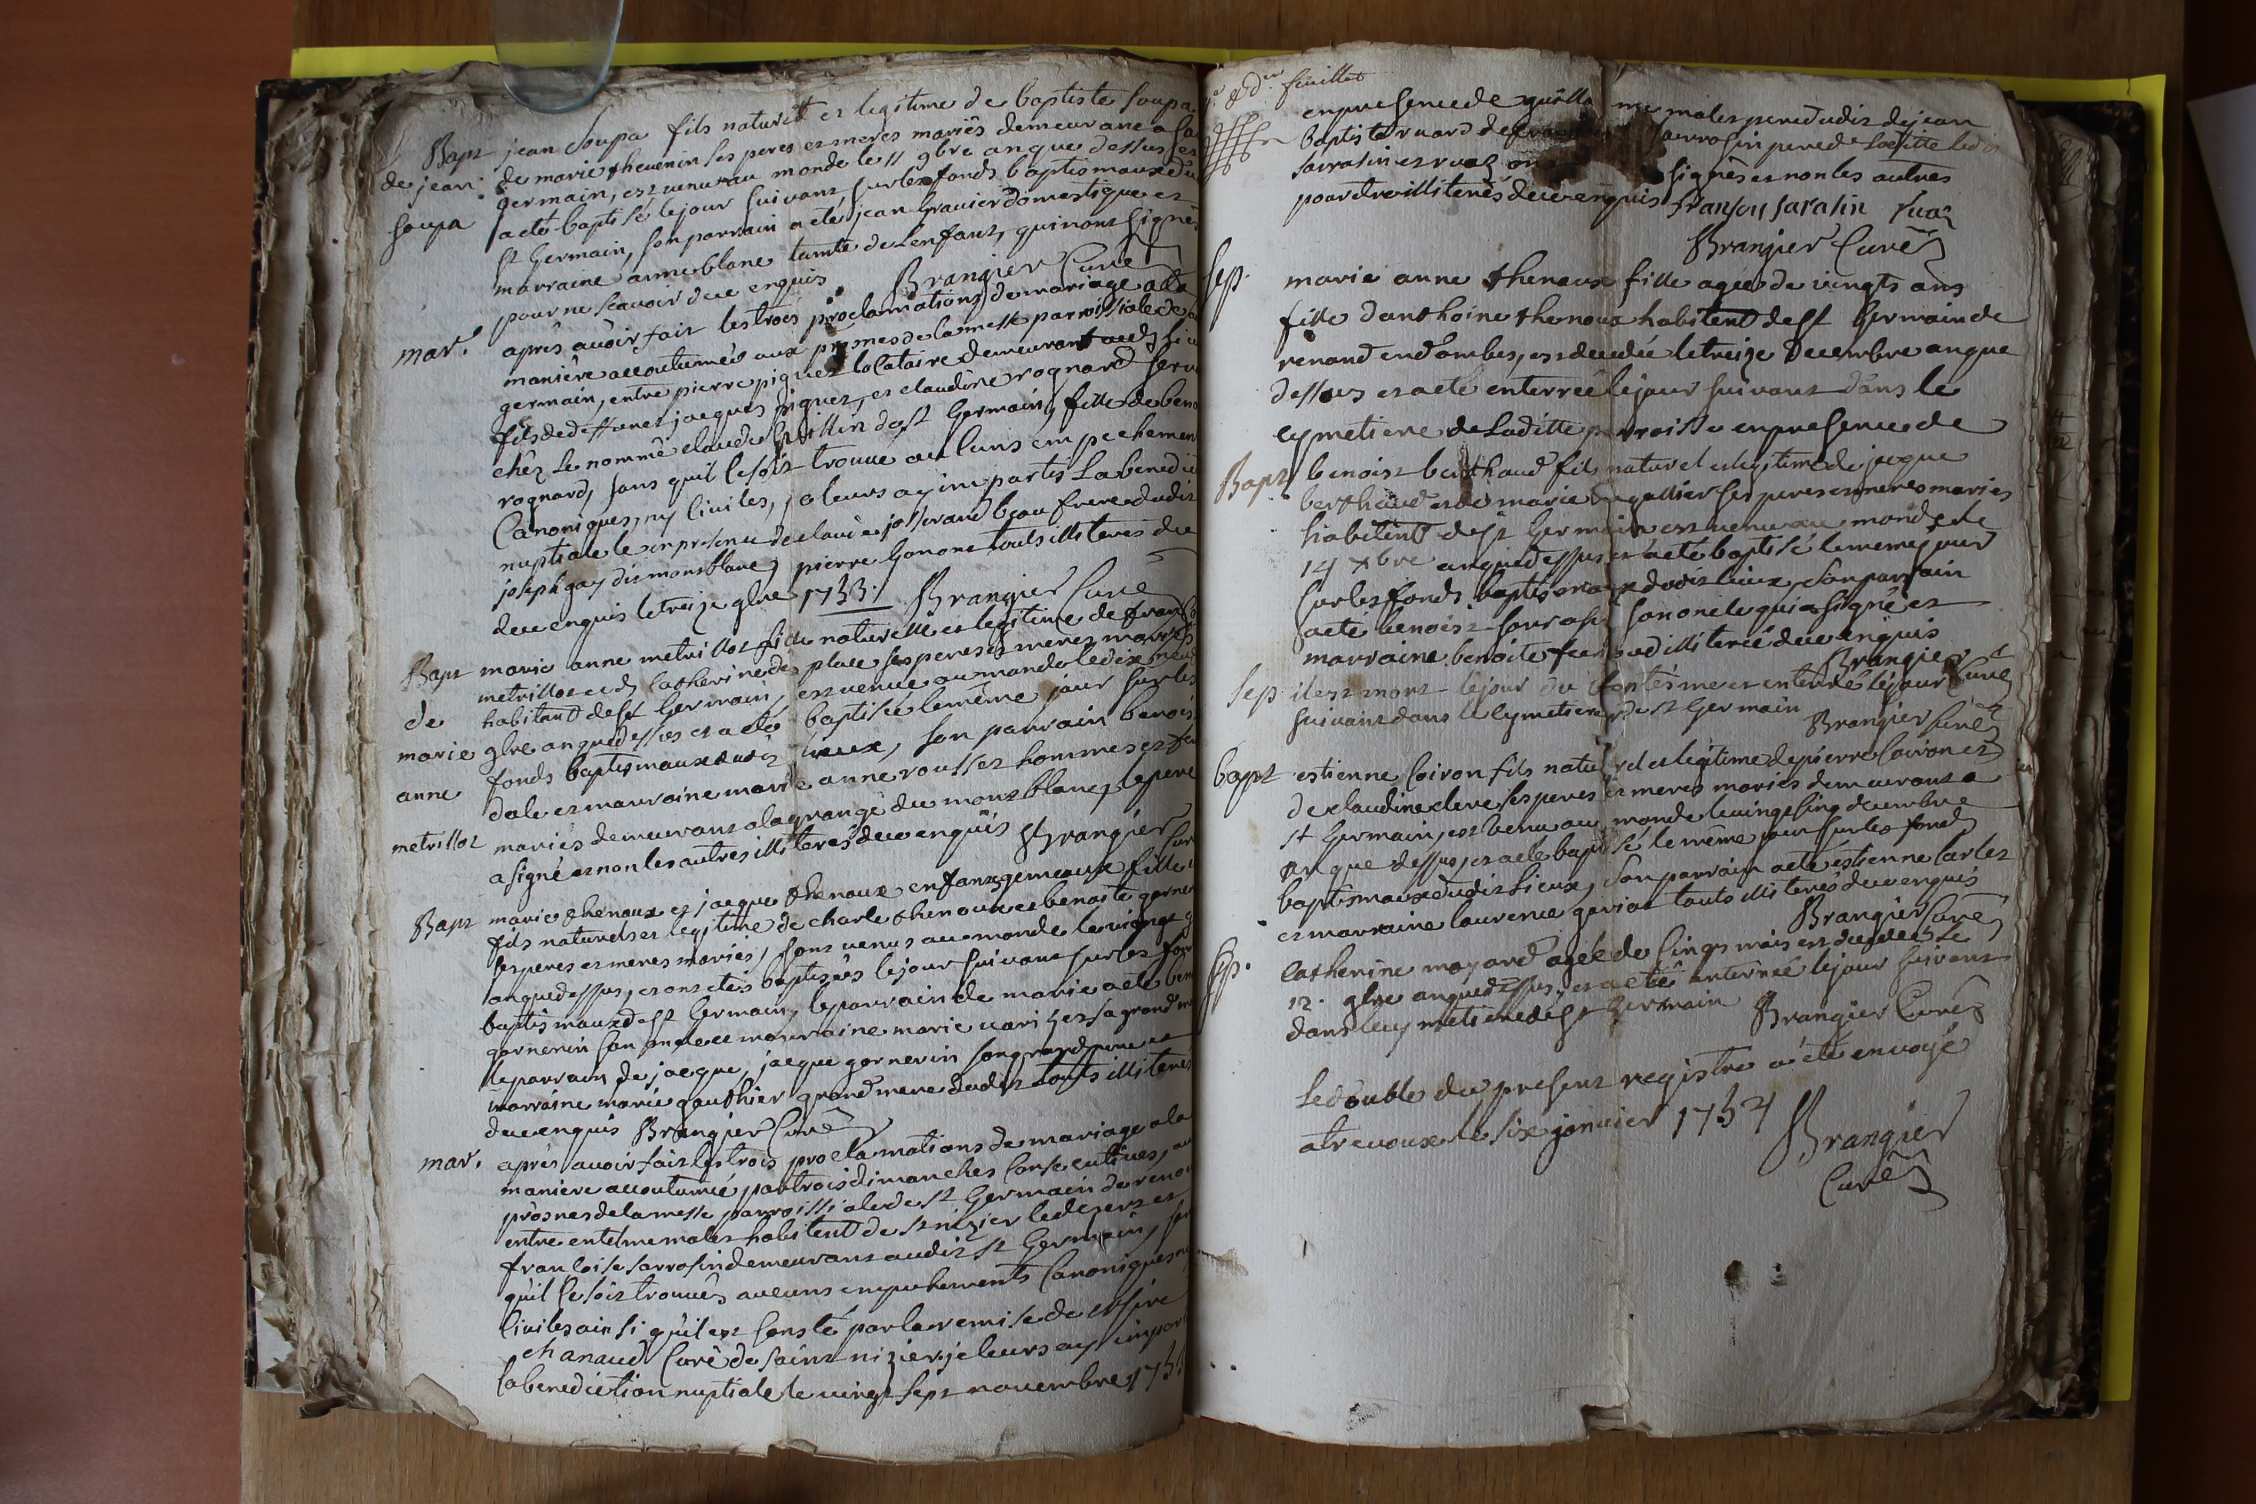 Bapt
de jean
soupa
jean soupa fils naturel et legitime de baptiste soupa
de marie thevenin ses peres et meres mariés demeurant a
germain, est venu au monde le 11 9bre an que dessus
a eté baptisé le jour suivant, sur les fonds baptismaux du
st Germain, son parrain a eté jean Gravier domestique et
marraine anne blanc tante de l'enfant, qui n'ont signés
pour ne scavoir de ce enquis Brangier Curé
mar.
après avoir fait les trois proclamations de mariage a la
manière accoutumée aux prosnes de la messe parroissiale de
germain, entre pierre piquet locataire demeurant aud
fils de deffunct jacques piquet, et claudine rognard
chez le nommé claude Guillin dost Germain, fille de
rognard, sans qu'il se soit trouvé aucuns empechement
Canoniques, ny Civiles, je leurs ay imparti La
nuptiale en presence de claude josserand beau frere dudit
joseph gay dit montblanc, pierre Gonon touts illiterés de
ce enquis le treize 9bre 1733. Brangier Curé
Bapt
de
marie
anne
metrillot
marie anne metrillot fille naturelle et legitime de
metrillot et de Catherine des place ses peres et meres mariés
habitant de st Germain, est venue au monde le dix neuf
9bre an que dessus et a eté baptisée le même jour sur les
fonds baptismaux dudit lieux, son parrain benoist
dale et marraine marie anne rousset hommes et
mariés demeurant a la grange du montblanc, le pere
a signé et non les autres illiterés de ce enquis Brangier
Curé
Bapt
marie thenoux et jacque thenoux enfants gemeaux fille
fils naturels et legitime de charle thenoux et benoite
ses peres et meres mariés, sont venus au monde le vingt
an que dessus, et ont etés baptisés le jour suivant sur les
baptismaux de st Germain, le parrain de marie a eté
gornerin son oncle et marraine marie variz et sa grand
le parrain de jacque, jacque gornerin son grand pere et
marraine marie gauthier grand mere dudit touts illiterés
de ce enquis Brangier Curé
mar.
après avoir fait les trois proclamations de mariage a la
maniere accoutumée par trois dimanches Consecutives,
prosnes de la messe parroissiale de st Germain de
entre entelme malet habitent de st nizier le desert et
francoise sarrosin demeurant audit st Germain,
qu'il se soit trouvés aucuns empechements Canoniques
Civiles ainsi qu'il est Consté par la remise de
chanaud Curé de saint nizier. je leurs ay
la benediction nuptiale le vingt sept novembre
feuillet
en presence de malet pere dudit de jean
baptiste ruard de sarrosin pere de Laditte
sarrasin et ruaz signés et non les autres
pour etre illiterés de ce enquis franson sarasin ruaz
Brangier Curé
sep.
marie anne thenoux fille agée de vingts ans
fille d'anthoine thenoux habitent de st Germain de
renand en dombes, est decedée le treize Decembre an que
dessus et a eté enterrée le jour suivant dans le
cymetiere de Laditte parroisse en presence de
Bapt
benoist berthaud fils naturel et legitime de jacque
berthaud et de marie gallier ses peres et meres mariés
habitent de st Germain est venu au monde le
14 xbre an que dessus et a eté baptisé le meme jour
sur les fonds baptismaux dudit lieux, son parrain
a eté benoist qui a signé et
marraine benoite illiterée de ce enquis
Brangier Curé
sep
il est mort le jour du et enterré le jour
suivant dans le cymetiere de st Germain
Brangier Curé
bapt
estienne Coiron fils naturel et legitime de pierre Coiron et
de claudine clere ses peres et meres mariés demeurant a
st Germain, est venu au monde le vingt sinq decembre
an que dessus, et a eté baptisé le même jour sur les fonds
baptismaux dudit Lieux, son parrain a eté estienne Carlet
et marraine laurence gariat touts illiterés de ce enquis
Brangier Curé
sep.
Catherine moyard agée de Cinqs mois est decedée Le
12. 9bre an que dessus, et a eté enterrée le jour suivant
dans le cymetiere de st Germain Brangier Curé
Le double du present registre a eté envoyé
a trevoux le six janvier 1734
Brangier
Curé